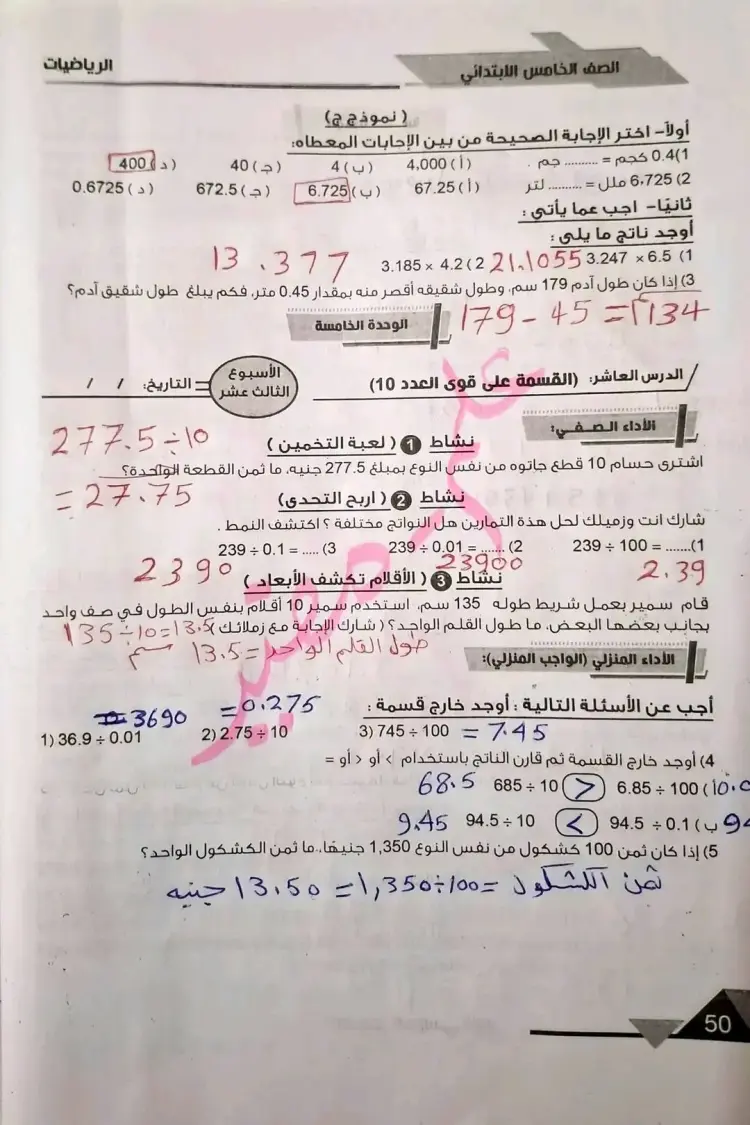 الصف الخامس الابتدائي
الرياضيات
(نموذج ج)
أولاً- اختر الإجابة الصحيحة من بين الإجابات المعطاه:
1) 0.4 كجم = .......... جم . (أ) 4,000 (ب) 4 (جـ) 40 (د) 400
2) 6,725 ملل = .......... لتر (أ) 67.25 (ب) 6.725 (جـ) 672.5 (د) 0.6725
ثانيًا- اجب عما يأتي :
أوجد ناتج ما يلي :
1) 3.247 × 6.5 21.1055 2) 3.185 × 4.2 13.377
3) إذا كان طول آدم 179 سم، وطول شقيقه أقصر منه بمقدار 0.45 متر، فكم يبلغ طول شقيق آدم؟
179 - 45 = 134
الوحدة الخامسة
الدرس العاشر: (القسمة على قوى العدد 10)
الأسبوع الثالث عشر
التاريخ: / /
الأداء الصفي:
نشاط 1 ( لعبة التخمين )
277.5 ÷ 10
اشترى حسام 10 قطع جاتوه من نفس النوع بمبلغ 277.5 جنيه، ما ثمن القطعة الواحدة؟
= 27.75
نشاط 2 ( اربح التحدي)
شارك انت وزميلك لحل هذة التمارين هل النواتج مختلفة ؟ اكتشف النمط .
1) 239 ÷ 100 = ....... 2) 239 ÷ 0.01 = ....... 3) 239 ÷ 0.1 = .....
2.39 23900 2390
نشاط 3 ( الأقلام تكشف الأبعاد )
قام سمير بعمل شريط طوله 135 سم، استخدم سمير 10 أقلام بنفس الطول في صف واحد
بجانب بعضها البعض، ما طول القلم الواحد؟ ( شارك الإجابة مع زملائك ) 135 ÷ 10 = 13.5
طول القلم الواحد = 13.5 سم
الأداء المنزلي (الواجب المنزلي):
أجب عن الأسئلة التالية : أوجد خارج قسمة :
= 3690 = 0.275
1) 36.9 ÷ 0.01 2) 2.75 ÷ 10 3) 745 ÷ 100 = 7.45
4) أوجد خارج القسمة ثم قارن الناتج باستخدام > أو < أو =
أ) 6.85 ÷ 100 < 685 ÷ 10 68.5
ب) 94.5 ÷ 0.1 > 94.5 ÷ 10 9.45
5) إذا كان ثمن 100 كشكول من نفس النوع 1,350 جنيهًا، ما ثمن الكشكول الواحد؟
ثمن الكشكول = 1,350 ÷ 100 = 13.50 جنيه
50